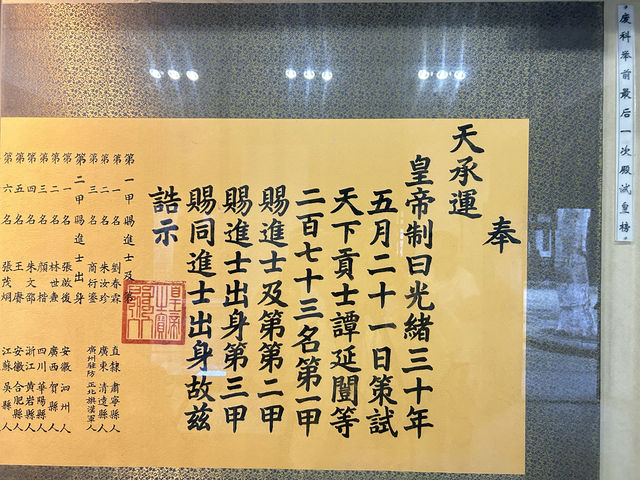 废科举前最后一次殿试皇榜
奉
天承運
皇帝制曰光緒三十年
五月二十一日策試
天下貢士譚延闓等
二百七十三名第一甲
賜進士及第第二甲
賜進士出身第三甲
賜同進士出身故茲
誥示
皇帝之寶
第一甲賜進士及第
第一名 劉春霖 直隸肅寧縣人
第二名 朱汝珍 廣東清遠縣人
第三名 商衍鎏 廣州駐防正白旗漢軍人
第二甲賜進士出身
第一名 張啟後 安徽泗州人
第二名 林世燾 廣西賀縣人
第三名 顏楷 四川華陽縣人
第四名 朱文劭 浙江黃岩縣人
第五名 王賡 安徽合肥縣人
第六名 張茂炯 江蘇吳縣人